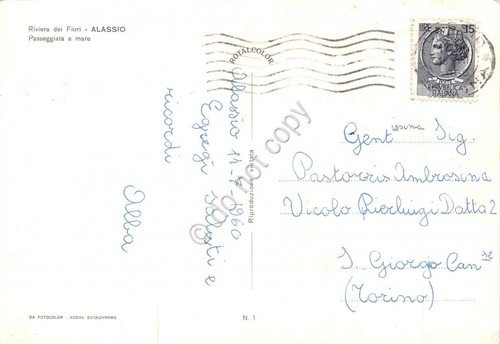 Riviera dei Fiori - ALASSIO
Passeggiata a mare
ROTALCOLOR
15
REPUBBLICA
ITALIANA
Alassio 14-7-1960
Egregi Saluti e
ricordi
Alba
Riproduzione vietata
do not copy
Gent issima Sig.
Pastoris Ambrosina
Vicolo Pierluigi Datta 2
S. Giorgio Can se
(Torino)
DA FOTOCOLOR - KODAK EKTACHROME
N. 1